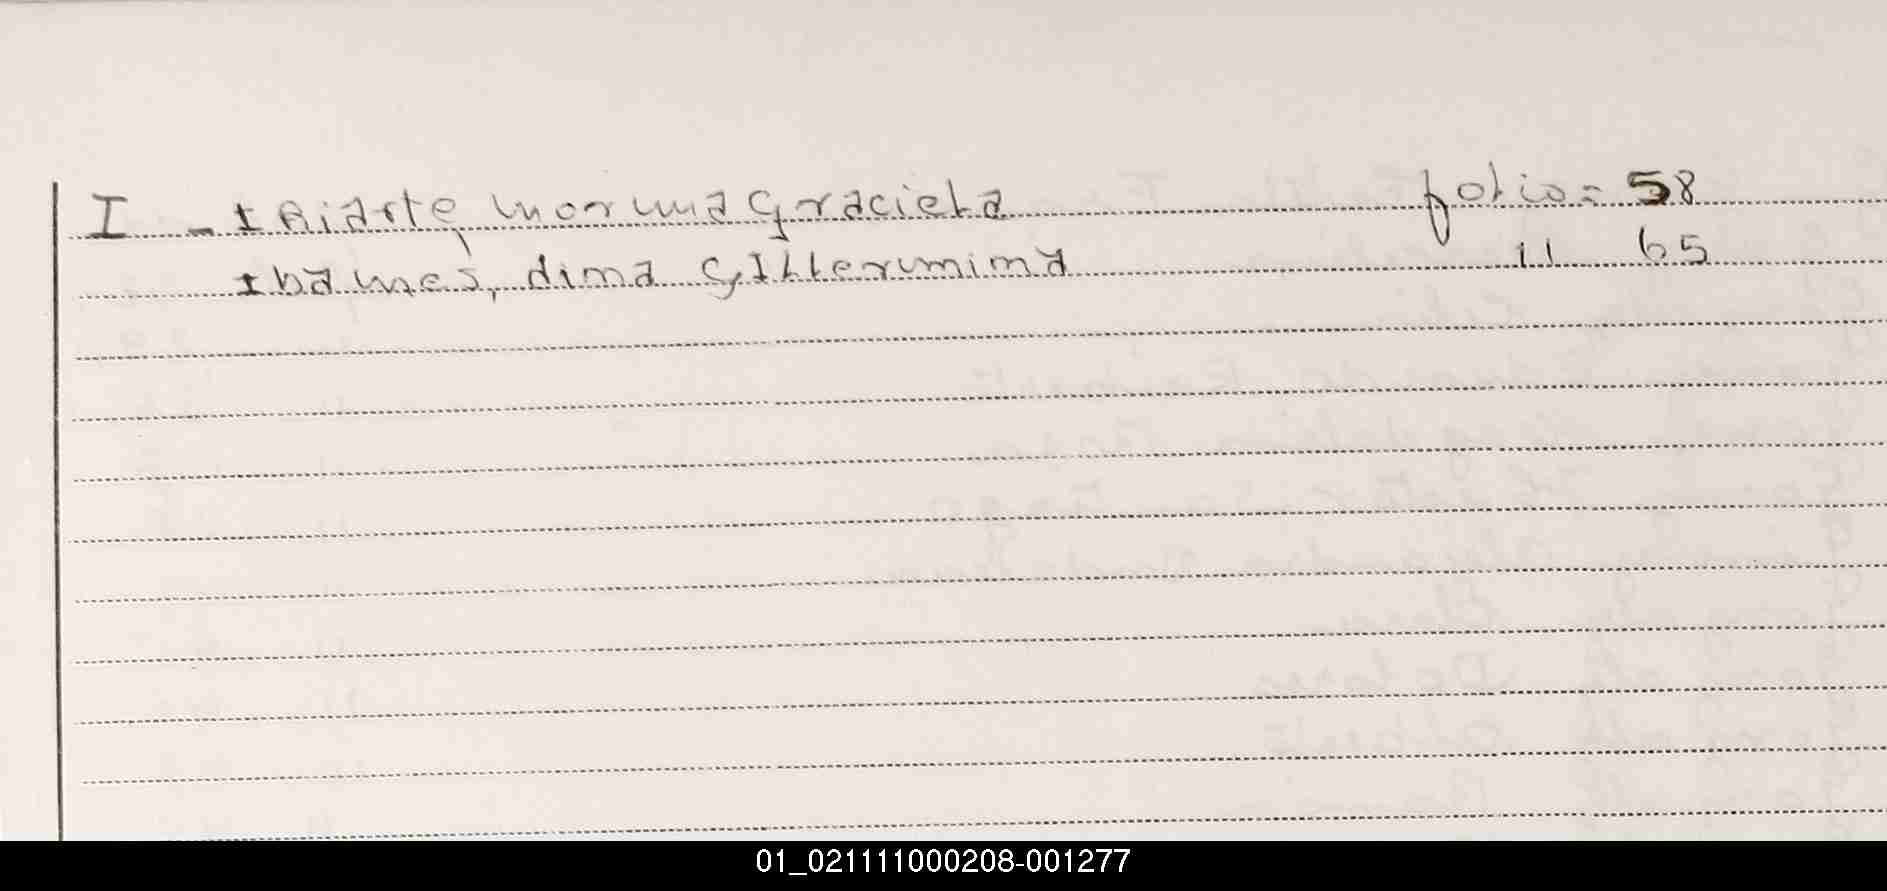 I - IRiarte, Norma Graciela folio = 58
Ibañes, dima gILLermina 11 65
01_021111000208-001277